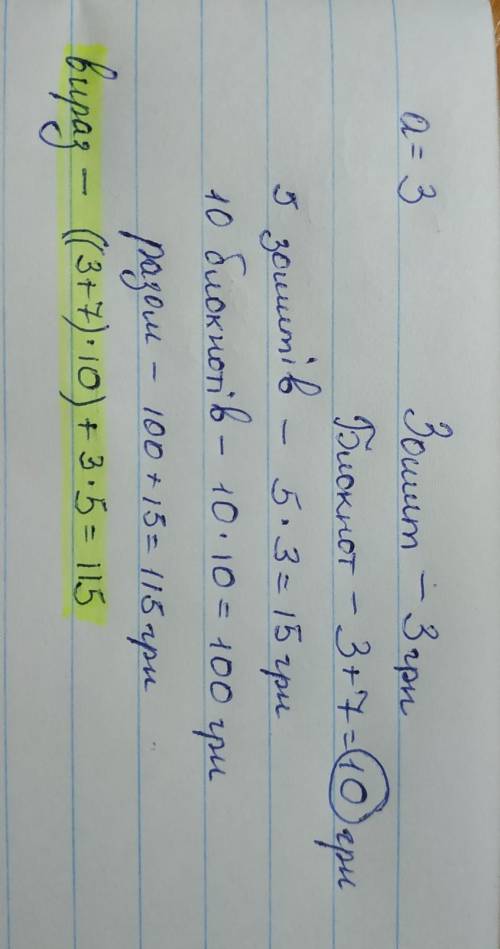 a = 3
Зошит - 3 грн
Блокнот - 3 + 7 = 10 грн
5 зошитів - 5 · 3 = 15 грн
10 блокнотів - 10 · 10 = 100 грн
разом - 100 + 15 = 115 грн
вираз - ((3+7) · 10) + 3 · 5 = 115